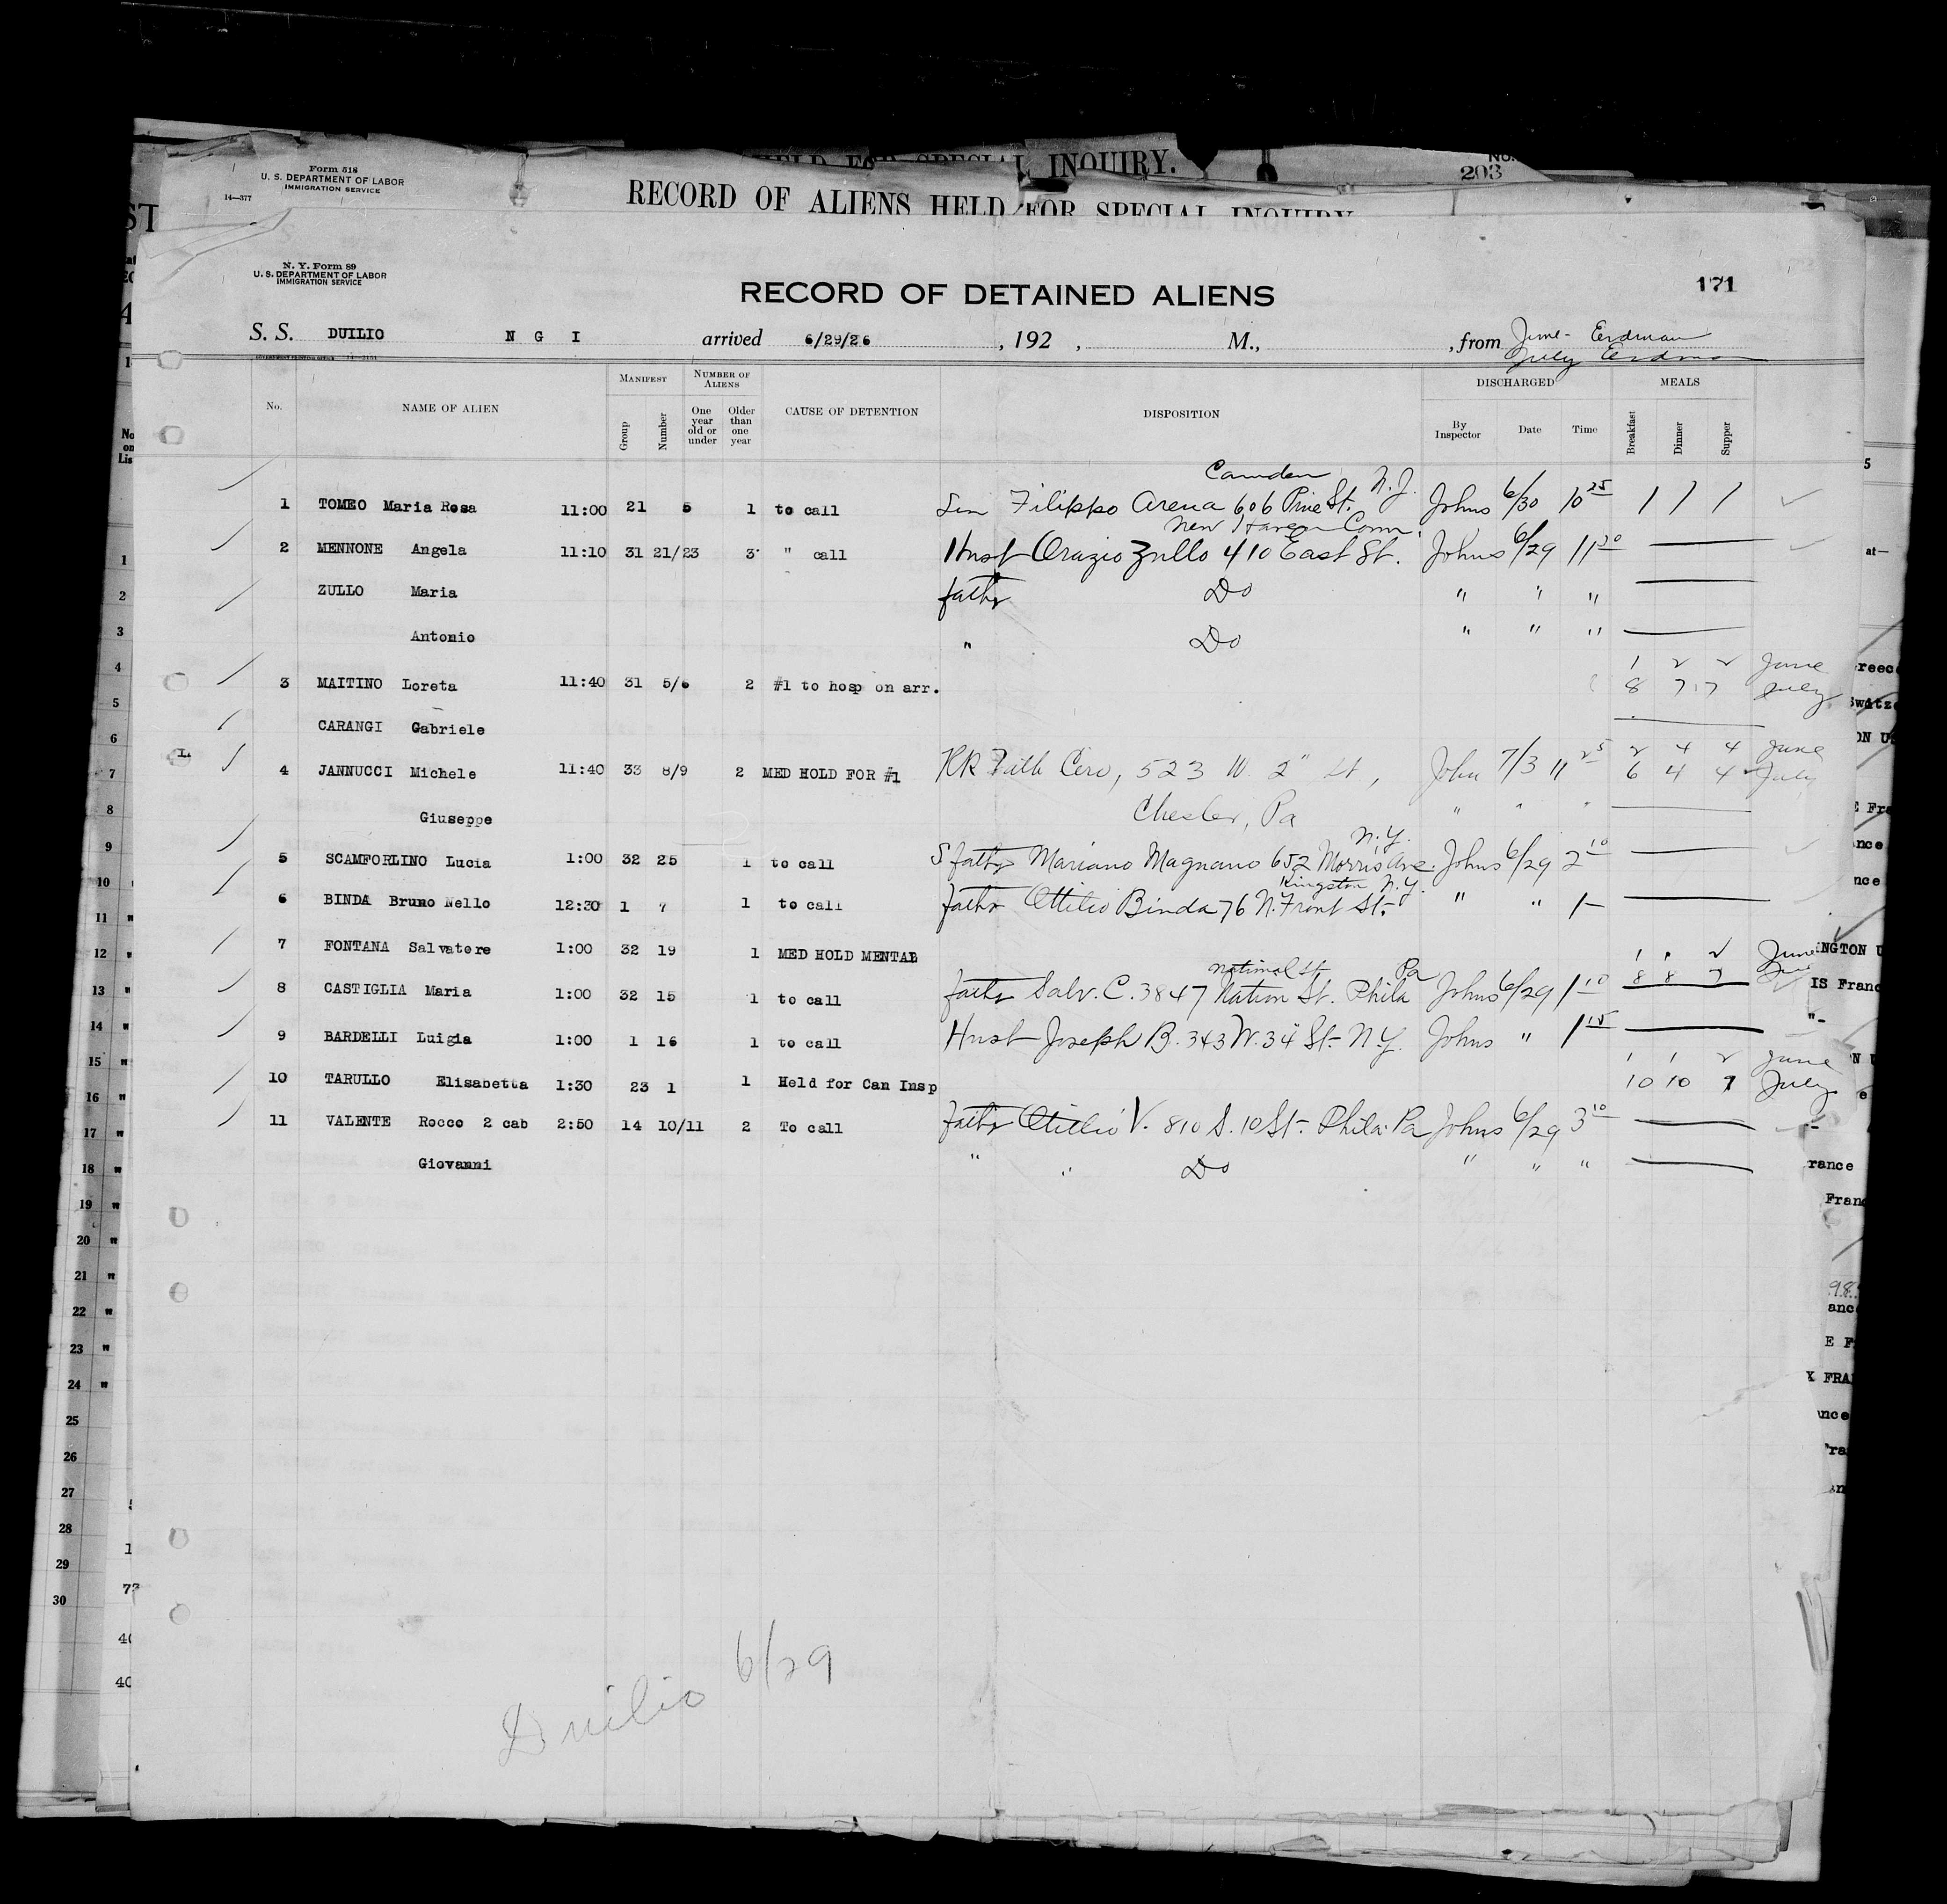 HELD FOR SPECIAL INQUIRY.
NO.
203
Form 518
U. S. DEPARTMENT OF LABOR
IMMIGRATION SERVICE
14—377
RECORD OF ALIENS HELD FOR SPECIAL INQUIRY
N. Y. Form 89
U. S. DEPARTMENT OF LABOR
IMMIGRATION SERVICE
RECORD OF DETAINED ALIENS
171
S. S. DUILIO N G I arrived 6/29/26, 192 , M., , from June - Erdman
July Erdman
No. NAME OF ALIEN MANIFEST Group Number NUMBER OF ALIENS One year old or under Older than one year CAUSE OF DETENTION DISPOSITION DISCHARGED By Inspector Date Time MEALS Breakfast Dinner Supper
Camden N.J.
1 TOMEO Maria Rosa 11:00 21 5 1 to call Filippo Arena 606 Pine St. Johns 6/30 10 25 1 1 1
New Haven Conn.
2 MENNONE Angela 11:10 31 21/23 3 " call Husb Orazio Zullo 410 East St. Johns 6/29 11 30
ZULLO Maria father Do " " "
Antonio " Do " " "
1 2 2 June
3 MAITINO Loreta 11:40 31 5/6 2 #1 to hosp on arr. 8 7 7 July
CARANGI Gabriele
2 4 4 June
4 JANNUCCI Michele 11:40 33 8/9 2 MED HOLD FOR #1 RR Fath Cero, 523 W. 2" St, John 7/3 11 25 6 4 4 July
Giuseppe Chester, Pa " " "
N.Y.
5 SCAMFORLINO Lucia 1:00 32 25 1 to call S father Mariano Magnano 652 Morris Ave. Johns 6/29 2 10
Kingston N.Y.
6 BINDA Bruno Nello 12:30 1 7 1 to call father Ottilio Binda 76 N. Front St. " " 1—
1 1 2 June
7 FONTANA Salvatore 1:00 32 19 1 MED HOLD MENTAL 8 8 7
National St. Pa
8 CASTIGLIA Maria 1:00 32 15 1 to call father Salv. C. 3847 Nation St. Phila Johns 6/29 1 10
9 BARDELLI Luigia 1:00 1 16 1 to call Husb Joseph B. 343 W. 34 St. N.Y. Johns " 1 15
1 1 2 June
10 TARULLO Elisabetta 1:30 23 1 1 Held for Can Insp 10 10 9 July
11 VALENTE Rocco 2 cab 2:50 14 10/11 2 To call father Ottilio V. 810 S. 10 St. Phila Pa Johns 6/29 3 10
Giovanni " " Do " " "
Duilio 6/29